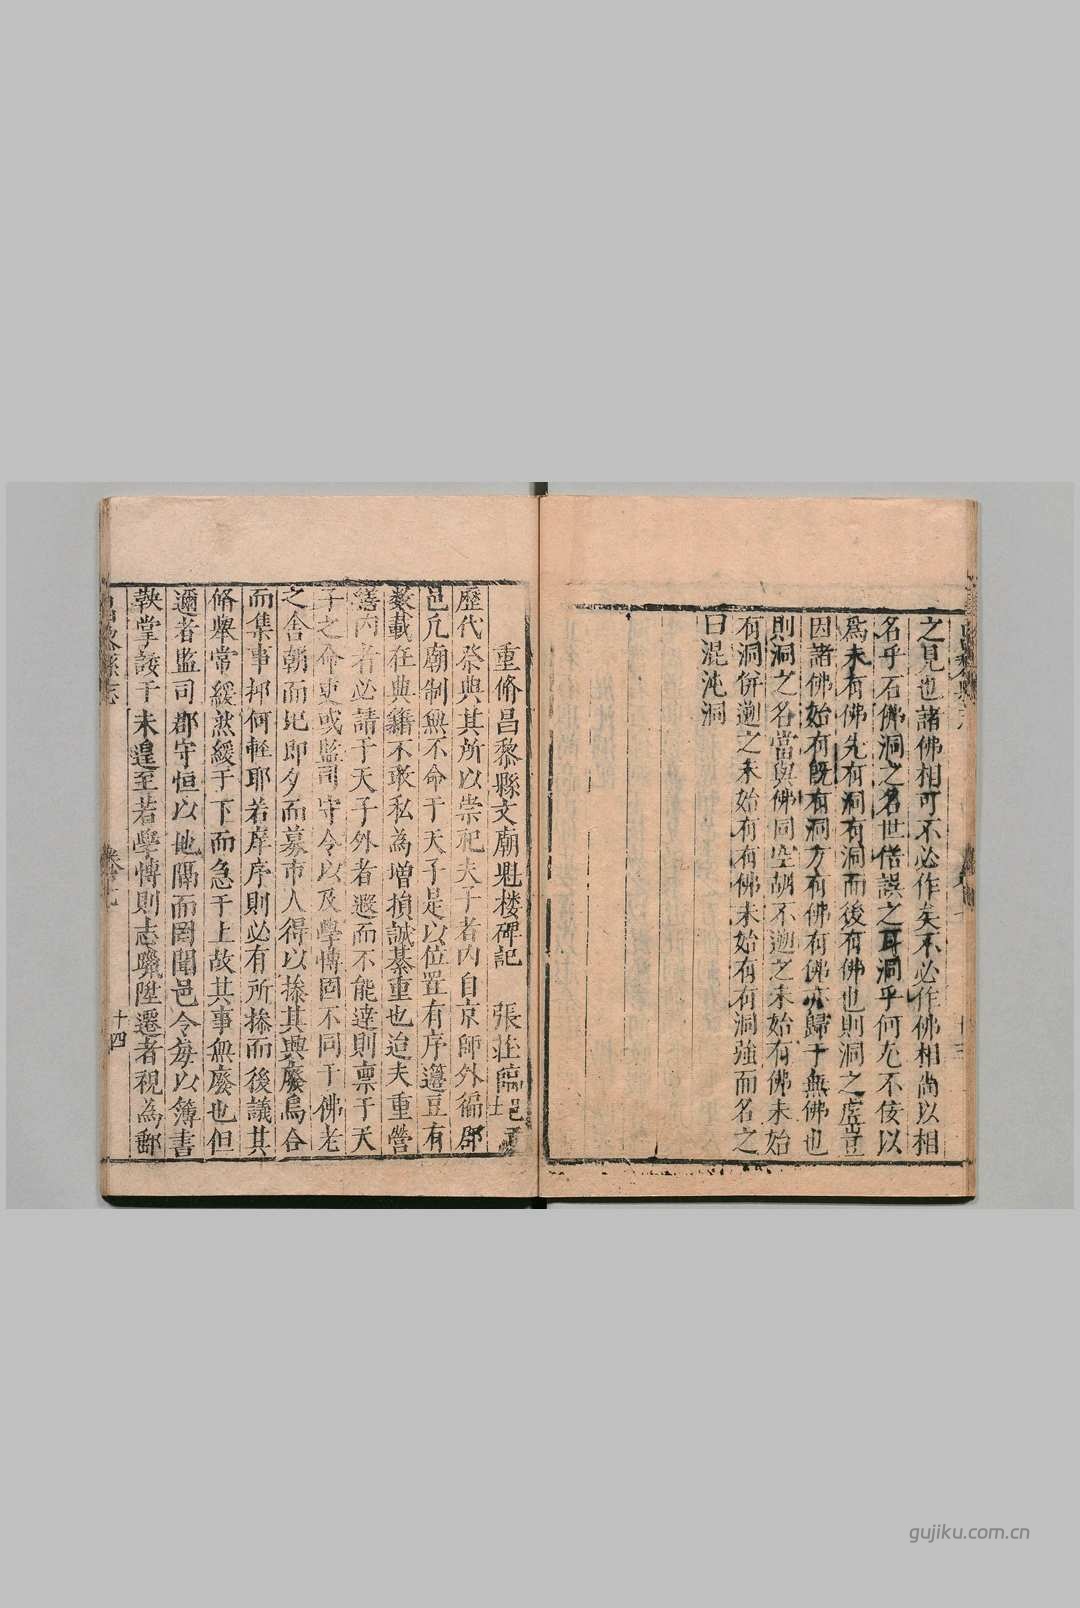 之見也諸佛相可不必作矣不必作佛相尚以相
名乎石佛洞之名世僧誤之耳洞乎何尤不佞以
爲未有佛先有洞有洞而後有佛也則洞之虛豈
因諸佛始有既有洞方有佛有佛亦歸于無佛也
則洞之名當與佛同空胡不遡之未始有佛未始
有洞併遡之未始有有佛未始有有洞強而名之
曰混沌洞
十三
重脩昌黎縣文廟魁楼碑記 張莊臨邑
歷代祭典其所以崇祀夫子者内自京師外徧郡
邑凢廟制無不命于天子是以位置有序籩豆有
数載在典籍不敢私為增損誠綦重也迨夫重營
舊内者必請于天子外者遐而不能達則禀于天
子之命吏或監司守令以及學愽固不同于佛老
之舍朝而圯即夕而募市人得以掺其興廢烏合
而集事抑何輕耶若庠序則必有所掺而後議其
脩舉常緩然緩于下而急于上故其事無廢也但
邇者監司郡守恒以地隔而罔聞邑令每以簿書
鞅掌諉于未遑至若學愽則志躐陞遷者視為鄱
昌黎縣志
十四
gujiku.com.cn